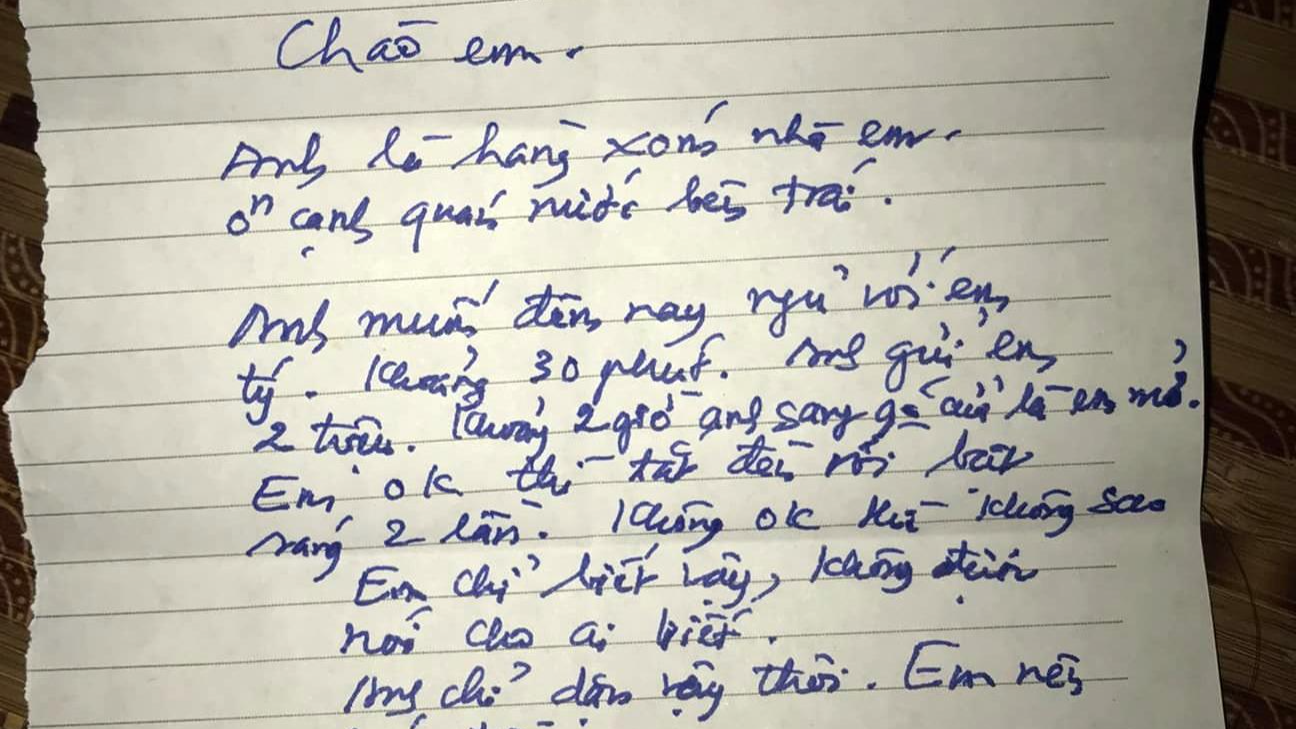 Chào em.
Anh là hàng xóm nhà em.
ở cạnh quán nước bên trái.
Anh muốn đêm nay ngủ với em
tý. Khoảng 30 phút. Anh gửi em
2 triệu. Khoảng 2 giờ anh sang gõ cửa là em mở.
Em ok thì tắt đèn rồi bật
sáng 2 lần. Không ok thì không sao
Em chỉ biết vậy, không được
nói cho ai biết.
Anh chỉ dặn vậy thôi. Em nên